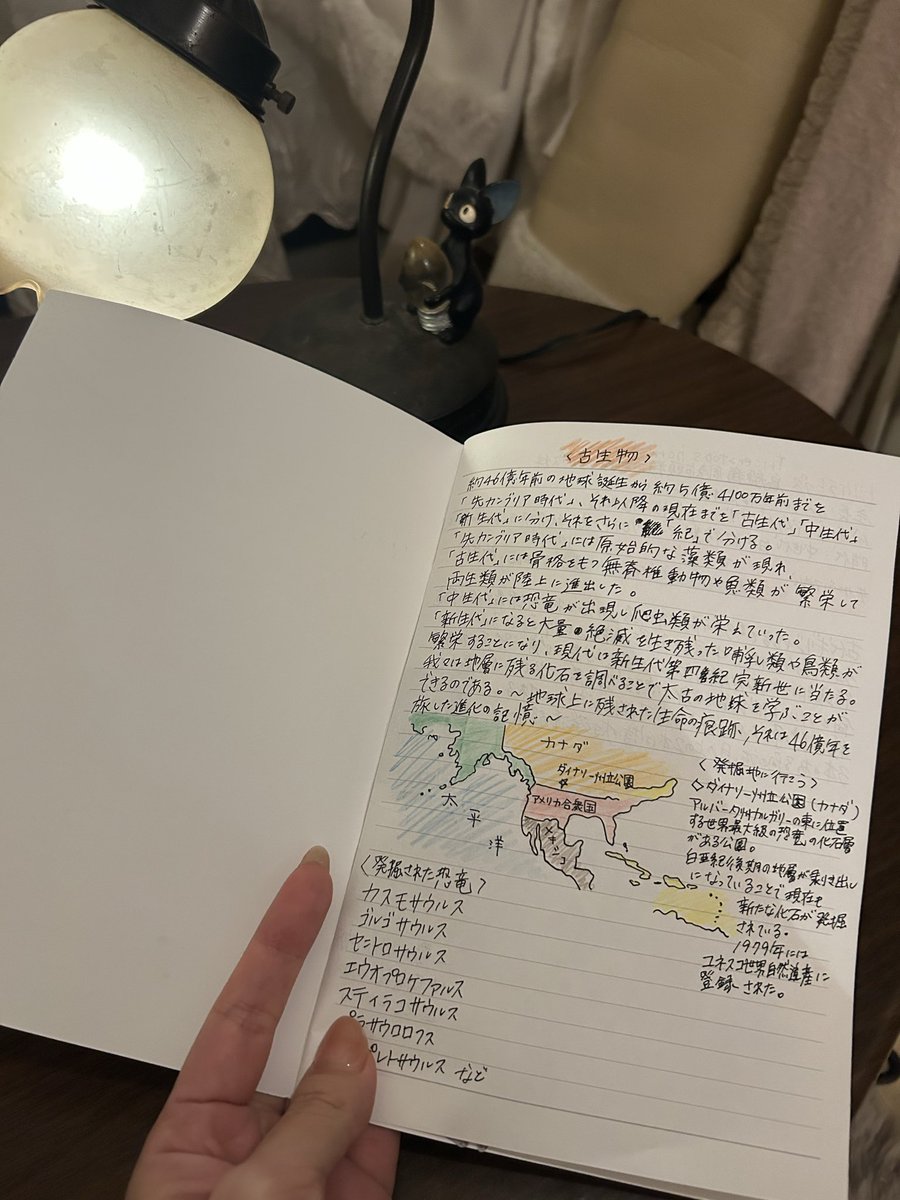 〈古生物〉
約46億年前の地球誕生から約5億4100万年前までを
「先カンブリア時代」、それ以降の現在までを「古生代」「中生代」
「新生代」に分け、それをさらに「紀」で分ける。
「先カンブリア時代」には原始的な藻類が現れ、
「古生代」には骨格をもつ無脊椎動物や魚類が繁栄して
両生類が陸上に進出した。
「中生代」には恐竜が出現し爬虫類が栄えていった。
「新生代」になると大量の絶滅を生き残った哺乳類や鳥類が
繁栄することになり、現代は新生代第四紀完新世に当たる。
我々は地層に残る化石を調べることで太古の地球を学ぶことが
できるのである。～地球上に残された生命の痕跡、それは46億年を
旅した進化の記憶～
カナダ
ダイナソー州立公園
アメリカ合衆国
メキシコ
太平洋
〈発掘地に行こう〉
◇ダイナソー州立公園(カナダ)
アルバータ州カルガリーの東に位置
する世界最大級の恐竜の化石層
がある公園。
白亜紀後期の地層が剥き出し
になっていることで現在も
新たな化石が発掘
されている。
1979年には
ユネスコ世界自然遺産に
登録された。
〈発掘された恐竜〉
カスモサウルス
ゴルゴサウルス
セントロサウルス
エウオプロケファルス
スティラコサウルス
パラサウロロフス
プレトサウルス など